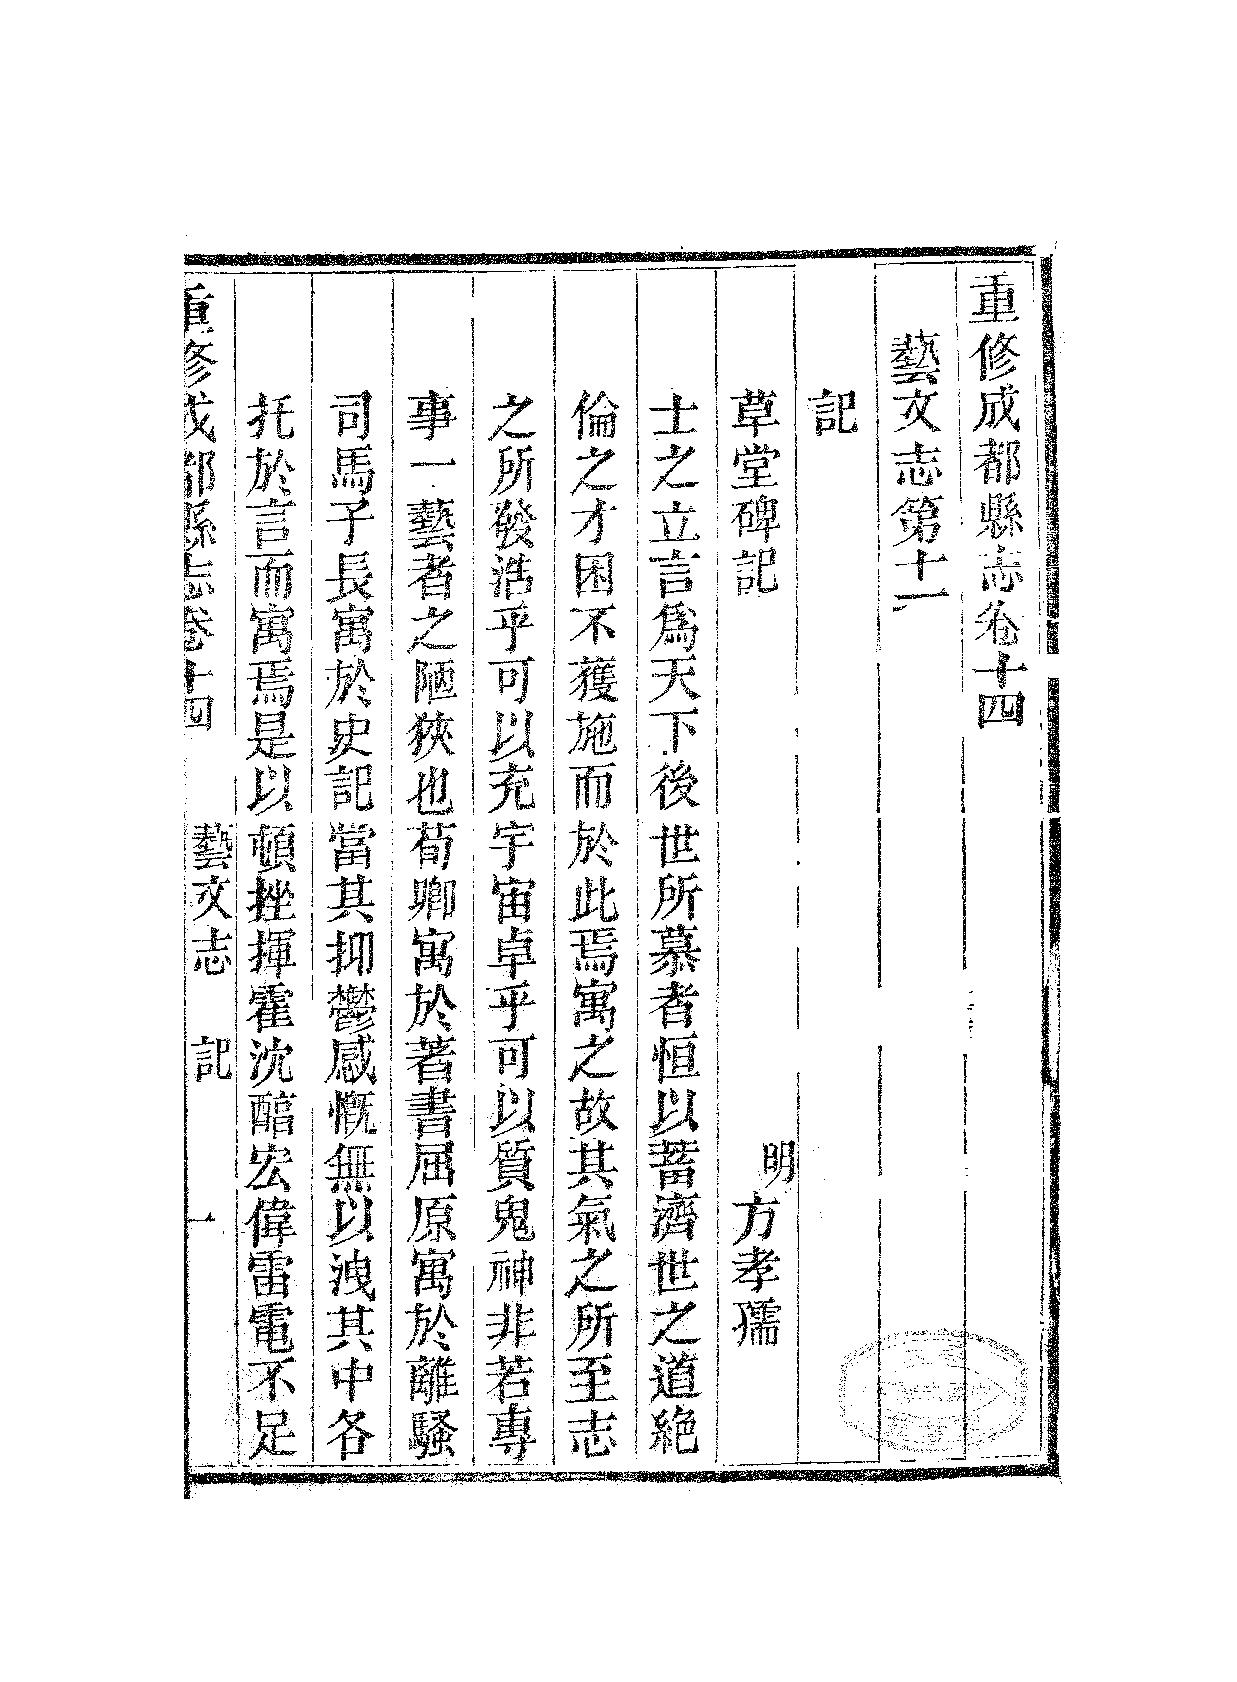 重修成都縣志卷十四
藝文志第十一
記
草堂碑記
明方孝孺
士之立言爲天下後世所慕者恒以蓄濟世之道絶
倫之才困不獲施而於此焉寓之故其氣之所至志
之所發浩乎可以充宇宙卓乎可以質鬼神非若專
事一藝者之陋狹也荀卿寓於著書屈原寓於離騷
司馬子長寓於史記當其抑鬱感慨無以洩其中各
托於言而寓焉是以頓挫揮霍沈酣宏偉雷電不足
重修成都縣志卷十四 藝文志 記 一